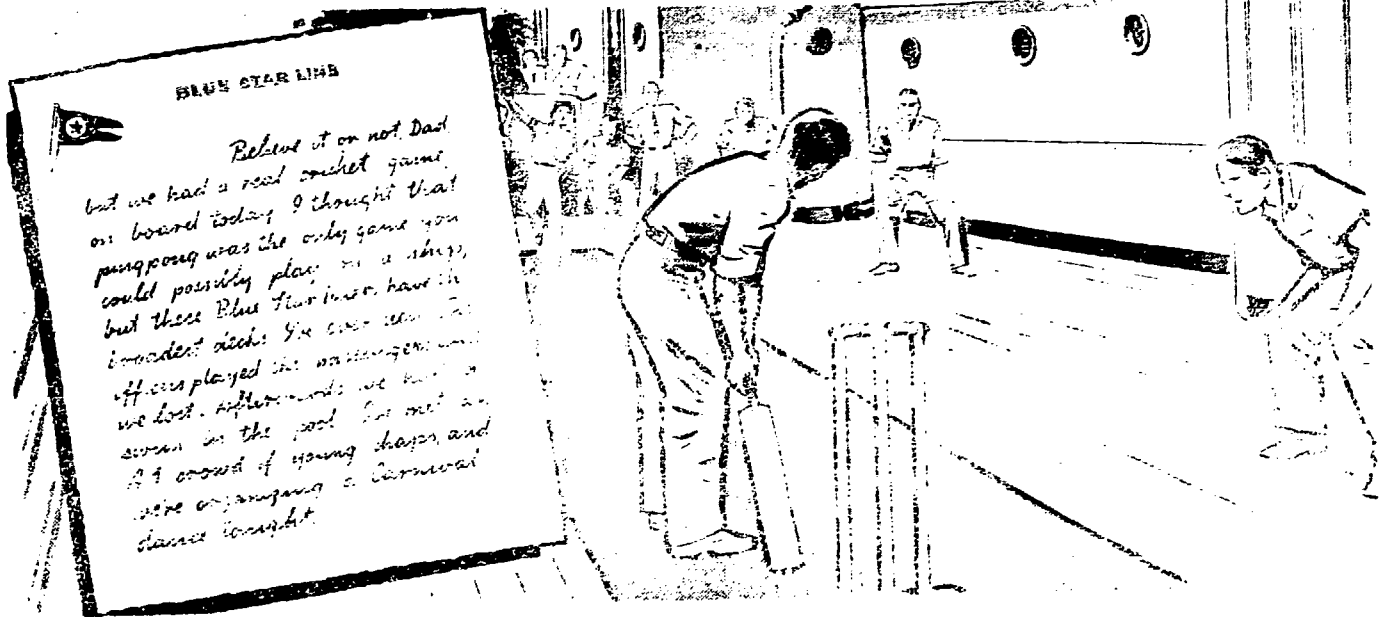 BLUE STAR LINE
Believe it or not, Dad
but we had a real cricket game
on board today. I thought that
ping pong was the only game you
could possibly play on a ship,
but these Blue Star liners have the
broadest decks I've ever seen. The
officers played the passengers and
we lost. Afterwards we had a
swim in the pool. I've met an
A 1 crowd of young chaps, and
we're organizing a Carnival
dance tonight.